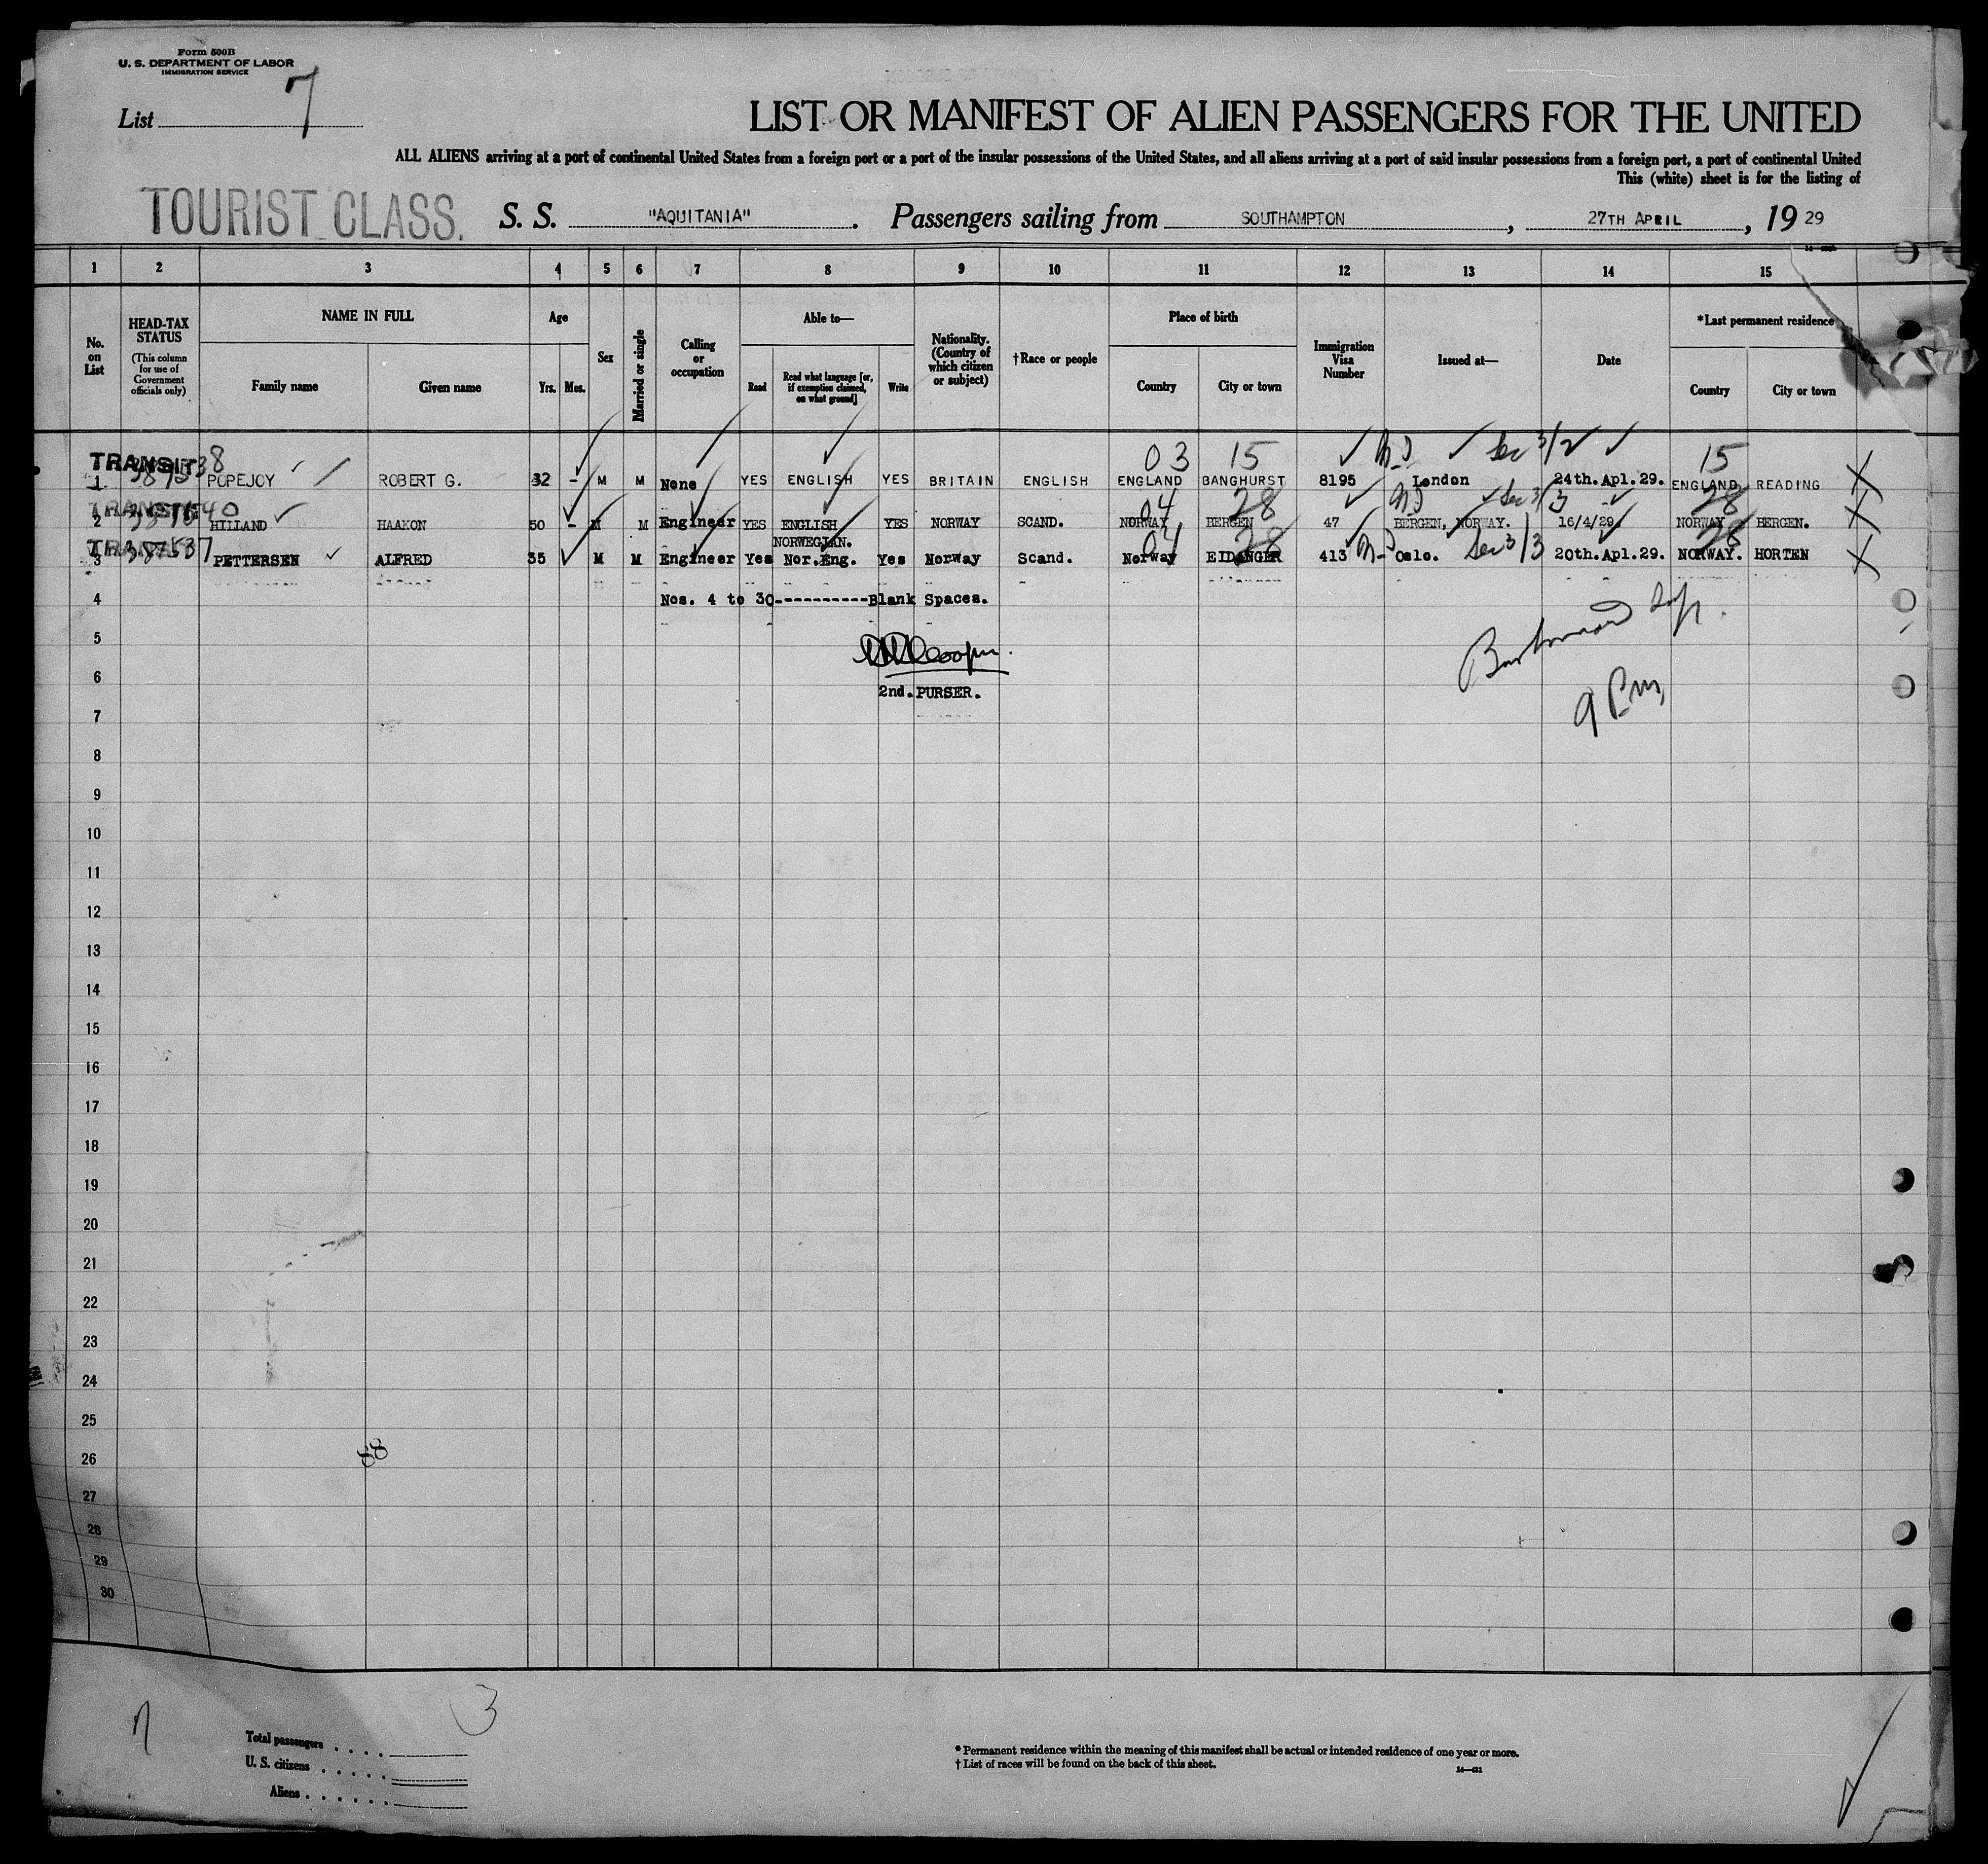 Form 500B
U. S. DEPARTMENT OF LABOR
IMMIGRATION SERVICE
List 7
LIST OR MANIFEST OF ALIEN PASSENGERS FOR THE UNITED
ALL ALIENS arriving at a port of continental United States from a foreign port or a port of the insular possessions of the United States, and all aliens arriving at a port of said insular possessions from a foreign port, a port of continental United
This (white) sheet is for the listing of
TOURIST CLASS. S. S. "AQUITANIA". Passengers sailing from SOUTHAMPTON, 27TH APRIL, 19 29
1 2 3 4 5 6 7 8 9 10 11 12 13 14 15
No. on List
HEAD-TAX STATUS (This column for use of Government officials only)
NAME IN FULL
Family name
Given name
Age
Yrs.
Mos.
Sex
Married or single
Calling or occupation
Able to—
Read
Read what language [or, if exemption claimed, on what ground]
Write
Nationality. (Country of which citizen or subject)
†Race or people
Place of birth
Country
City or town
Immigration Visa Number
Issued at—
Date
*Last permanent residence
Country
City or town
03 15 Sec 3/2 15
TRANSIT
1 POPEJOY ROBERT G. 32 - M M None YES ENGLISH YES BRITAIN ENGLISH ENGLAND BANGHURST 8195 London 24th.Apl.29. ENGLAND READING X
04 28 Sec 3/3 28
TRANSIT
2 HILLAND HAAKON 50 - M M Engineer YES ENGLISH YES NORWAY SCAND. NORWAY BERGEN 47 BERGEN, NORWAY. 16/4/29. NORWAY BERGEN. X
NORWEGIAN.
04 28 Sec 3/3 28
387537
3 PETTERSEN ALFRED 35 M M Engineer Yes Nor.Eng. Yes Norway Scand. Norway EIDANGER 413 Oslo. 20th.Apl.29. NORWAY. HORTEN X
4 Nos. 4 to 30----------Blank Spaces.
5
6 2nd. PURSER.
7
8
9
10
11
12
13
14
15
16
17
18
19
20
21
22
23
24
25
26
88
27
28
29
30
3
Total passengers
U. S. citizens
Aliens
* Permanent residence within the meaning of this manifest shall be actual or intended residence of one year or more.
† List of races will be found on the back of this sheet.